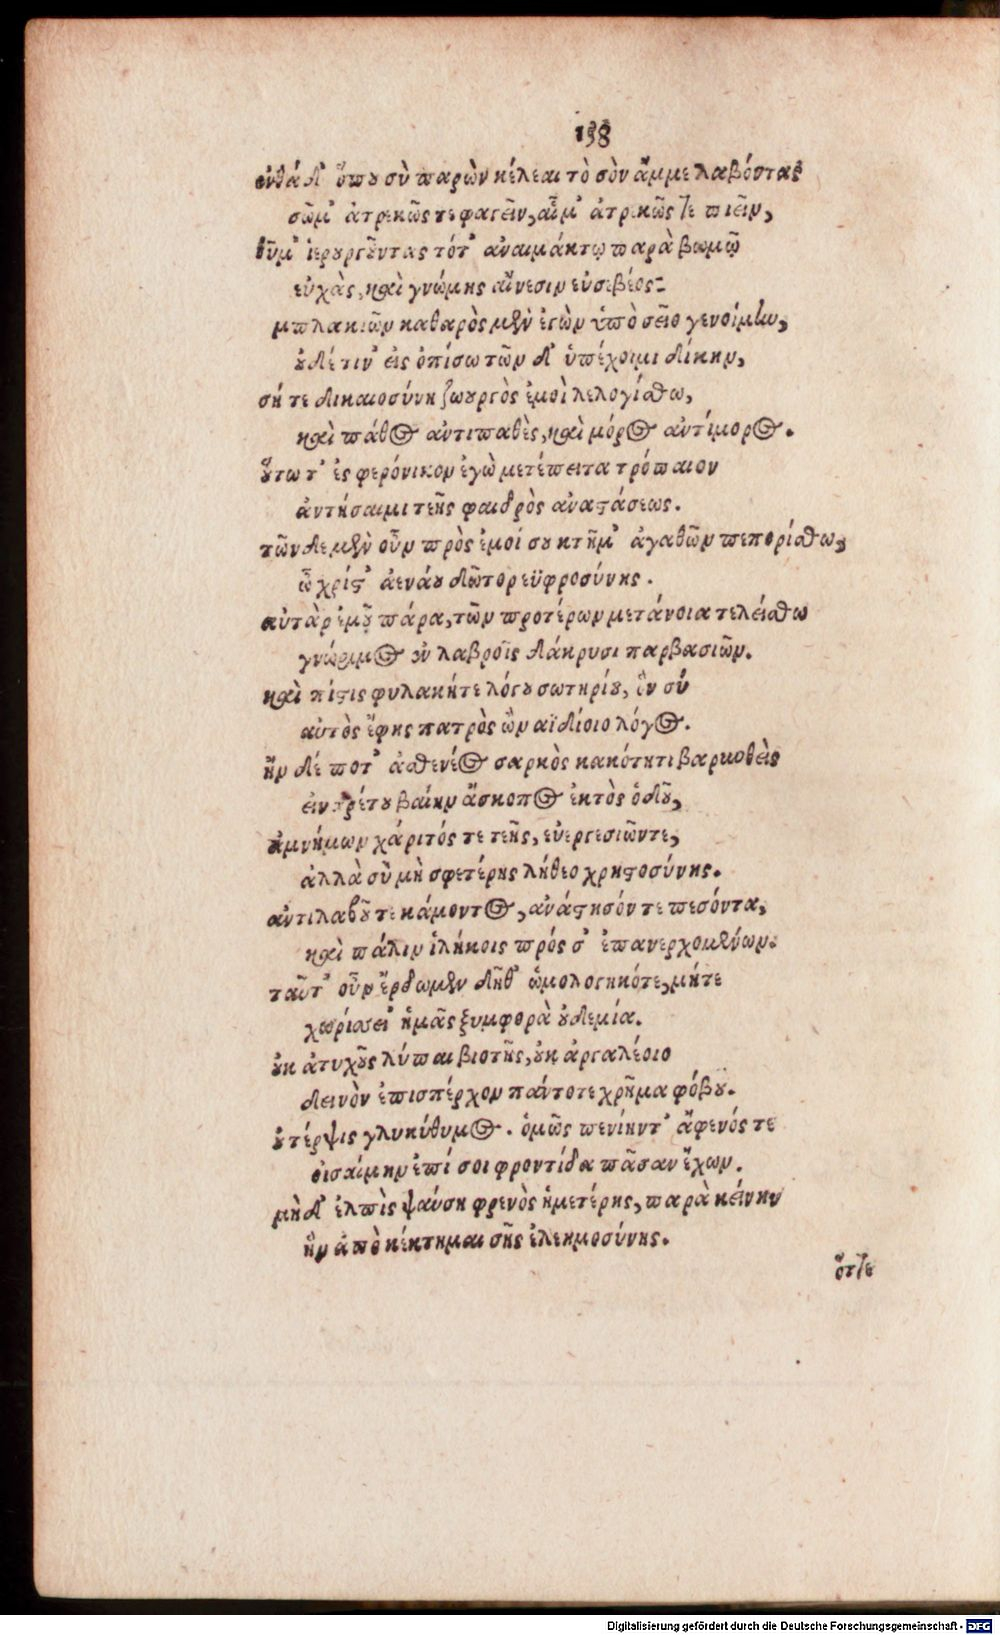 138
ἐνθάδ' ὅπου σὺ παρὼν κέλεαι τὸ σὸν ἄμμε λαβόντας
σῶμ' ἀτρεκῶς τε φαγεῖν, αἷμ' ἀτρεκῶς τε πιεῖν,
θῦμ' ἱερουργοῦντας τότ' ἀναιμάκτῳ παρὰ βωμῷ
εὐχὰς, καὶ γνώμης αἴνεσιν εὐσεβέος·
μπλακιῶν καθαρὸς μὲν ἐγὼν ὑπὸ σεῖο γενοίμην,
οὐδέ τιν' εἰς ὀπίσω τῶν δ' ὑπέχοιμι δίκην,
σή τε δικαιοσύνη ζωουργὸς ἐμοὶ λελογίσθω,
καὶ πάθος ἀντιπαθὲς, καὶ μόρος ἀντίμορος.
οὕτω τ' ἐς φερόνικον ἐγὼ μετέπειτα τρόπαιον
ἀντήσαιμι τεῆς φαιδρὸς ἀναστάσεως.
τῶνδε μὲν οὖν πρὸς ἐμοί σου κτῆμ' ἀγαθῶν πεπορίσθω,
ὦ χρίστ' ἀενάου δῶτορ ἐϋφροσύνης.
αὐτὰρ ἐμοῦ πάρα, τῶν προτέρων μετάνοια τελείσθω
γνώριμος ἐν λαβροῖς δάκρυσι παρβασιῶν.
καὶ πίστις φυλακή τε λόγου σωτηρίου, ὃν σύ
αὐτὸς ἔφης πατρὸς ὢν αϊδίοιο λόγος.
ἢν δέ ποτ' ἀσθενέος σαρκὸς κακότητι βαρυνθεὶς
ἐιν τρίτου βαίην ἄσκοπος ἐκτὸς ὁδοῦ,
ἀμνήμων χάριτός τε τεῆς, εὐεργεσιῶν τε,
ἀλλὰ σὺ μὴ σφετέρης λήθεο χρηστοσύνης.
ἀντιλαβοῦ τε κάμοντος, ἀνάστησόν τε πεσόντα,
καὶ πάλιν ἱλήκοις πρός σ' ἐπανερχομένων.
ταῦτ' οὖν ἔρδωμεν δῆθ' ὡμολογηκότε, μήτε
χωρίσει' ἡμᾶς ξυμφορὰ οὐδεμία.
οὐκ ἀτυχοῦς λύπαι βιοτῆς, οὐκ ἀργαλέοιο
δεινὸν ἐπισπέρχον πάντοτε χρῆμα φόβου.
οὐ τέρψις γλυκύθυμος. ὁμῶς πενίην τ' ἄφενός τε
οἰσαίμην ἐπί σοι φροντίδα πᾶσαν ἔχων.
μὴ δ' ἐλπὶς ψαύσῃ φρενὸς ἡμετέρης, παρὰ κείνην
ἣν ἀπὸ κέκτημαι σῆς ἐλεημοσύνης.
ὅτ τε
Digitalisierung gefördert durch die Deutsche Forschungsgemeinschaft - DFG